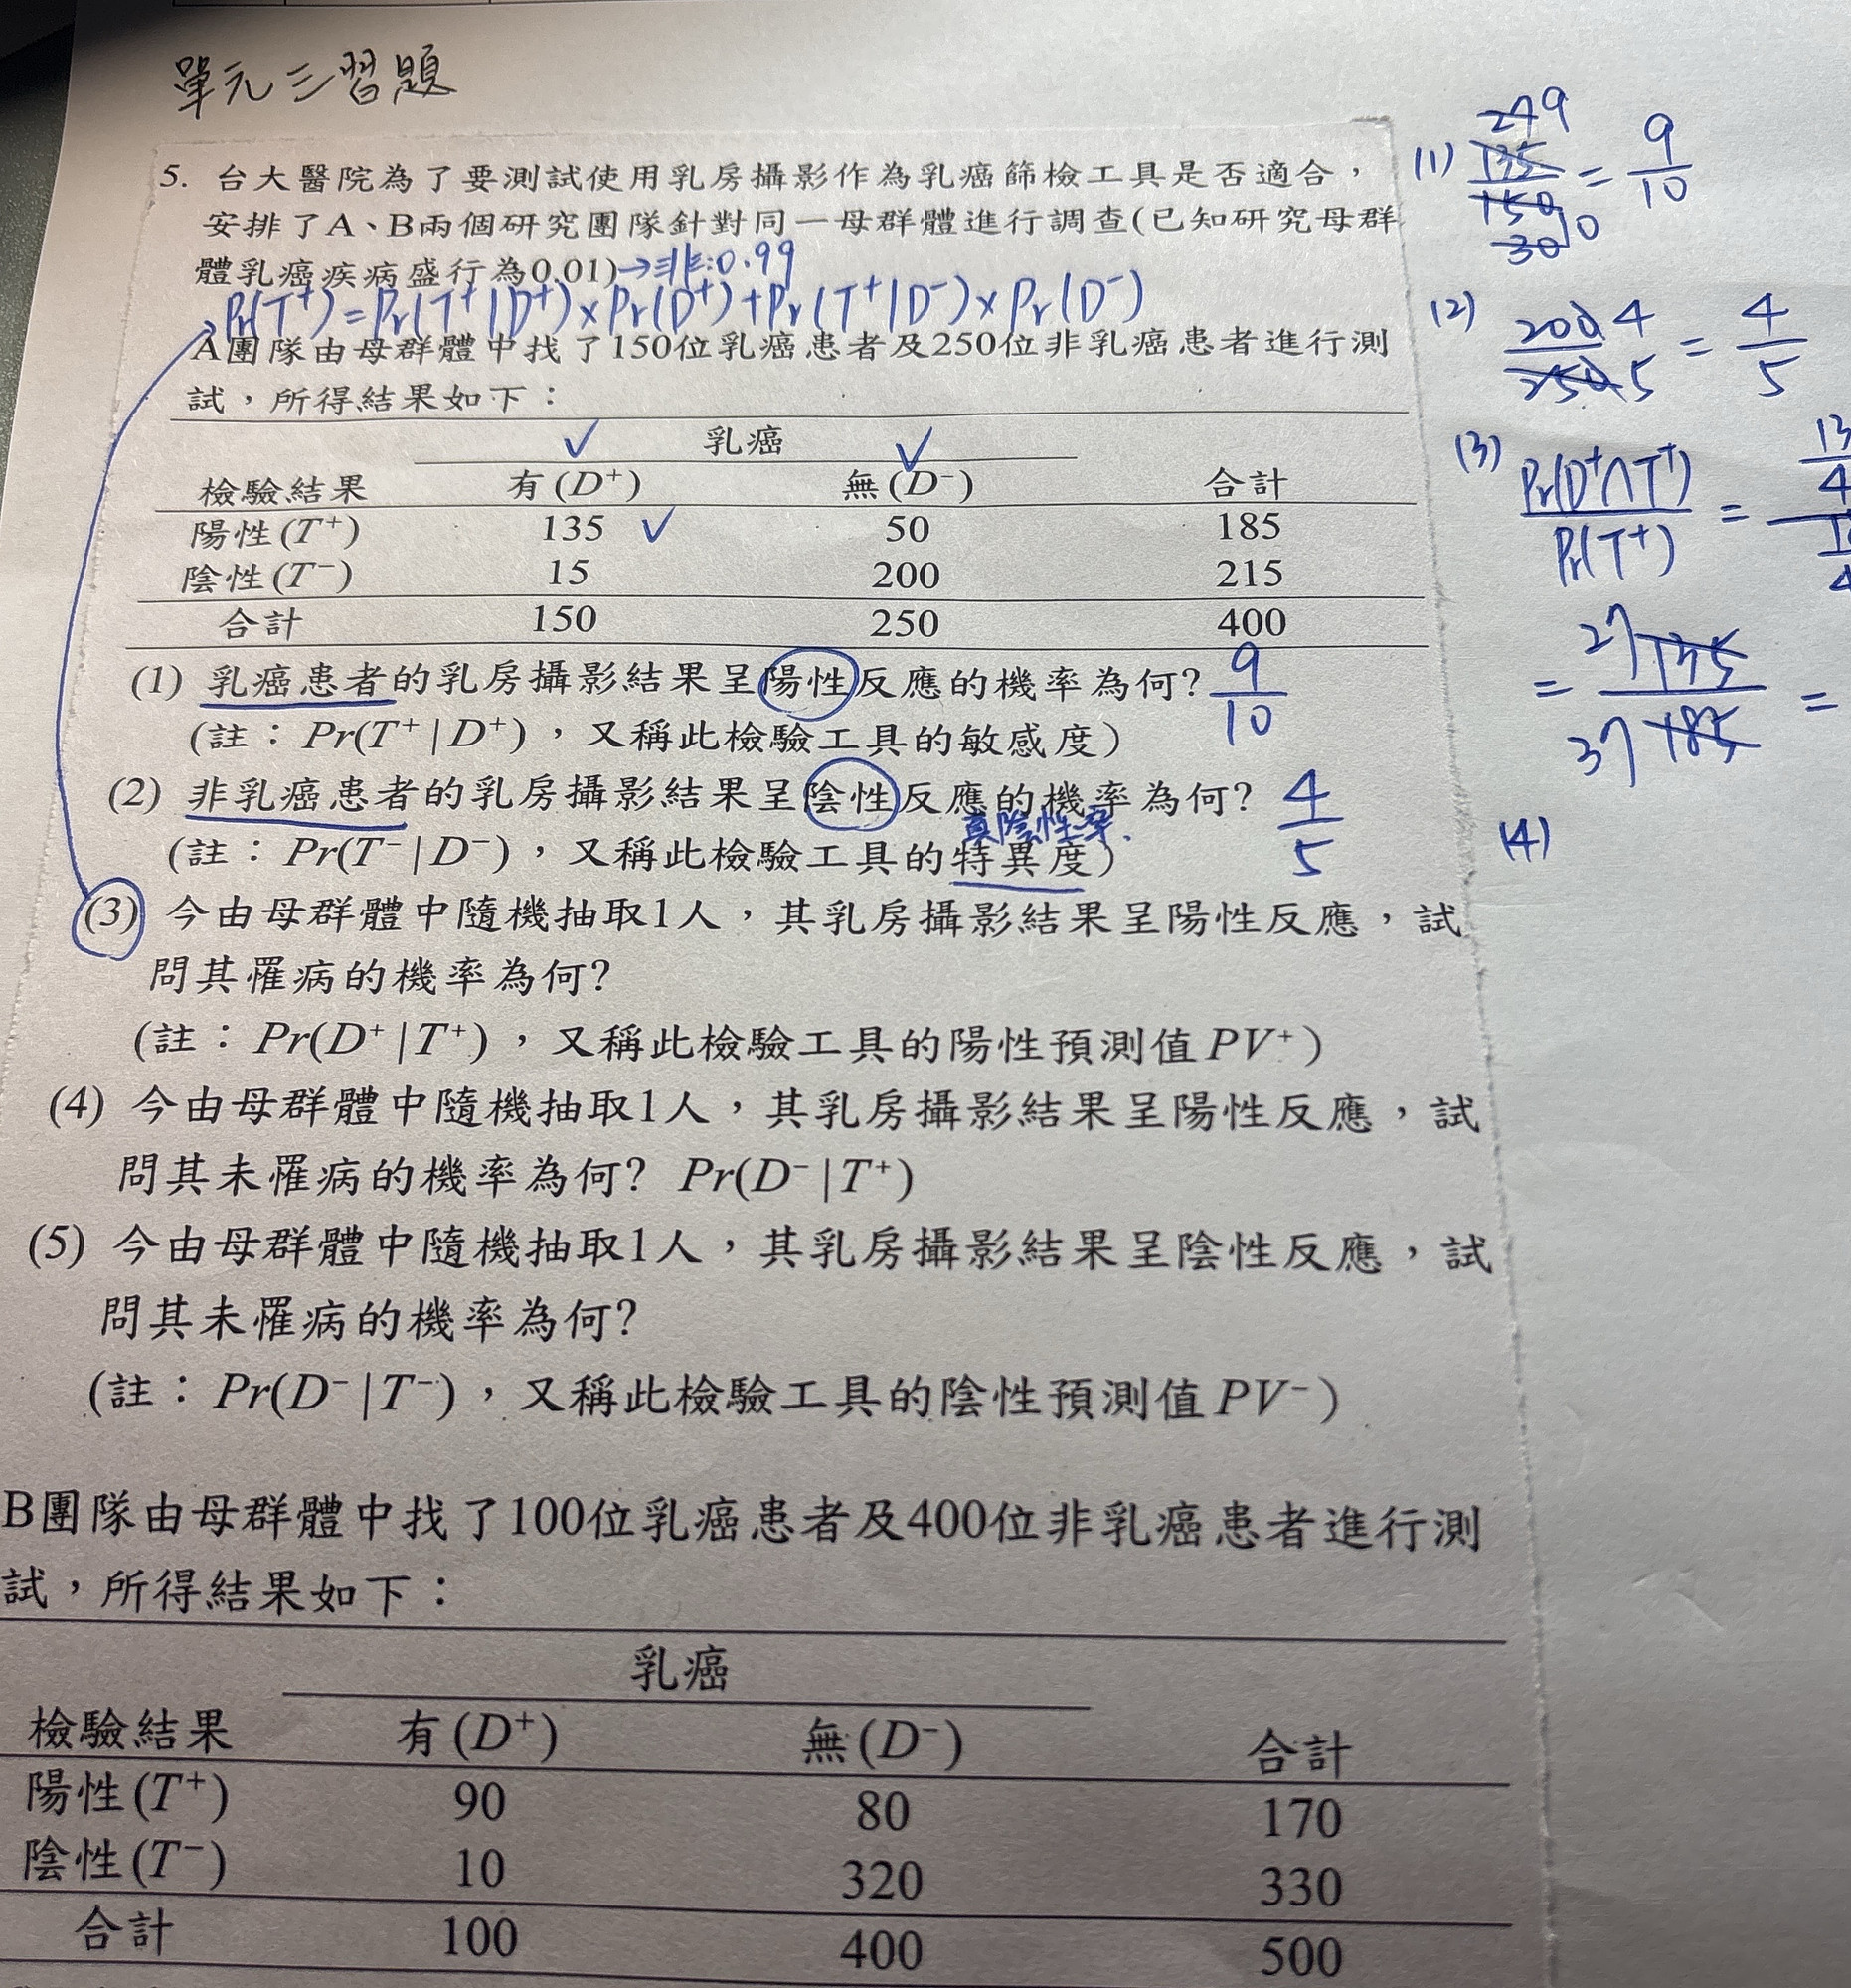 單元三習題
5. 台大醫院為了要測試使用乳房攝影作為乳癌篩檢工具是否適合，
安排了A、B兩個研究團隊針對同一母群體進行調查(已知研究母群
體乳癌疾病盛行為0.01)→非:0.99
Pr(T⁺)=Pr(T⁺|D⁺)×Pr(D⁺)+Pr(T⁺|D⁻)×Pr(D⁻)
A團隊由母群體中找了150位乳癌患者及250位非乳癌患者進行測
試，所得結果如下：
✓ 乳癌 ✓
檢驗結果 有(D⁺) 無(D⁻) 合計
陽性(T⁺) 135 ✓ 50 185
陰性(T⁻) 15 200 215
合計 150 250 400
(1) 乳癌患者的乳房攝影結果呈陽性反應的機率為何? 9/10
(註：Pr(T⁺|D⁺)，又稱此檢驗工具的敏感度)
(2) 非乳癌患者的乳房攝影結果呈陰性反應的機率為何? 4/5
真陰性率.
(註：Pr(T⁻|D⁻)，又稱此檢驗工具的特異度)
(3) 今由母群體中隨機抽取1人，其乳房攝影結果呈陽性反應，試
問其罹病的機率為何?
(註：Pr(D⁺|T⁺)，又稱此檢驗工具的陽性預測值PV⁺)
(4) 今由母群體中隨機抽取1人，其乳房攝影結果呈陽性反應，試
問其未罹病的機率為何? Pr(D⁻|T⁺)
(5) 今由母群體中隨機抽取1人，其乳房攝影結果呈陰性反應，試
問其未罹病的機率為何?
(註：Pr(D⁻|T⁻)，又稱此檢驗工具的陰性預測值PV⁻)
B團隊由母群體中找了100位乳癌患者及400位非乳癌患者進行測
試，所得結果如下：
乳癌
檢驗結果 有(D⁺) 無(D⁻) 合計
陽性(T⁺) 90 80 170
陰性(T⁻) 10 320 330
合計 100 400 500
(1) 135/150 = 9/10
(2) 200/250 = 4/5
(3) Pr(D⁺∩T⁺)/Pr(T⁺) =
= 27 135/37 185 =
(4)